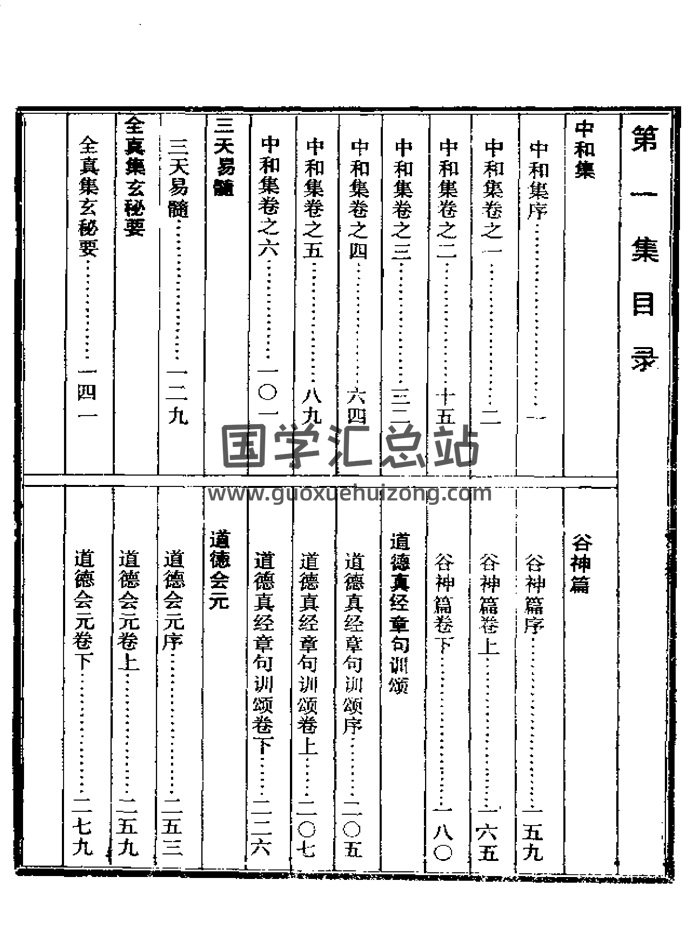 第一集目录
中和集
中和集序……………一
中和集卷之一……………二
中和集卷之二……………十五
中和集卷之三……………三二
中和集卷之四……………六四
中和集卷之五……………八九
中和集卷之六……………一〇一
三天易髓
三天易髓……………一二九
全真集玄秘要
全真集玄秘要……………一四一
谷神篇
谷神篇序……………一五九
谷神篇卷上……………一六五
谷神篇卷下……………一八〇
道德真经章句训颂
道德真经章句训颂序……………二〇五
道德真经章句训颂卷上……………二〇七
道德真经章句训颂卷下……………二二六
道德会元
道德会元序……………二五三
道德会元卷上……………二五九
道德会元卷下……………二七九
国学汇总站
www.guoxuehuizong.com